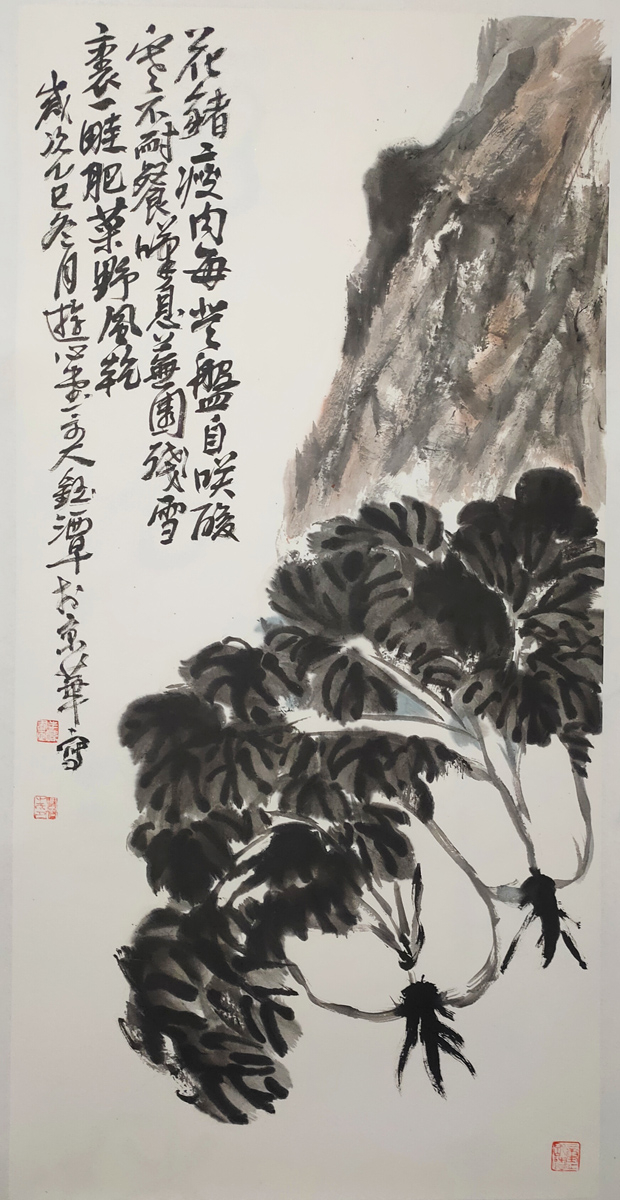 花豬瘦肉每登盤自咲酸
寒不耐餐嘆息蕪園殘雪
裏一畦肥菜野風乾
歲次乙巳冬月遊心堂主人鈺潭於京華寫